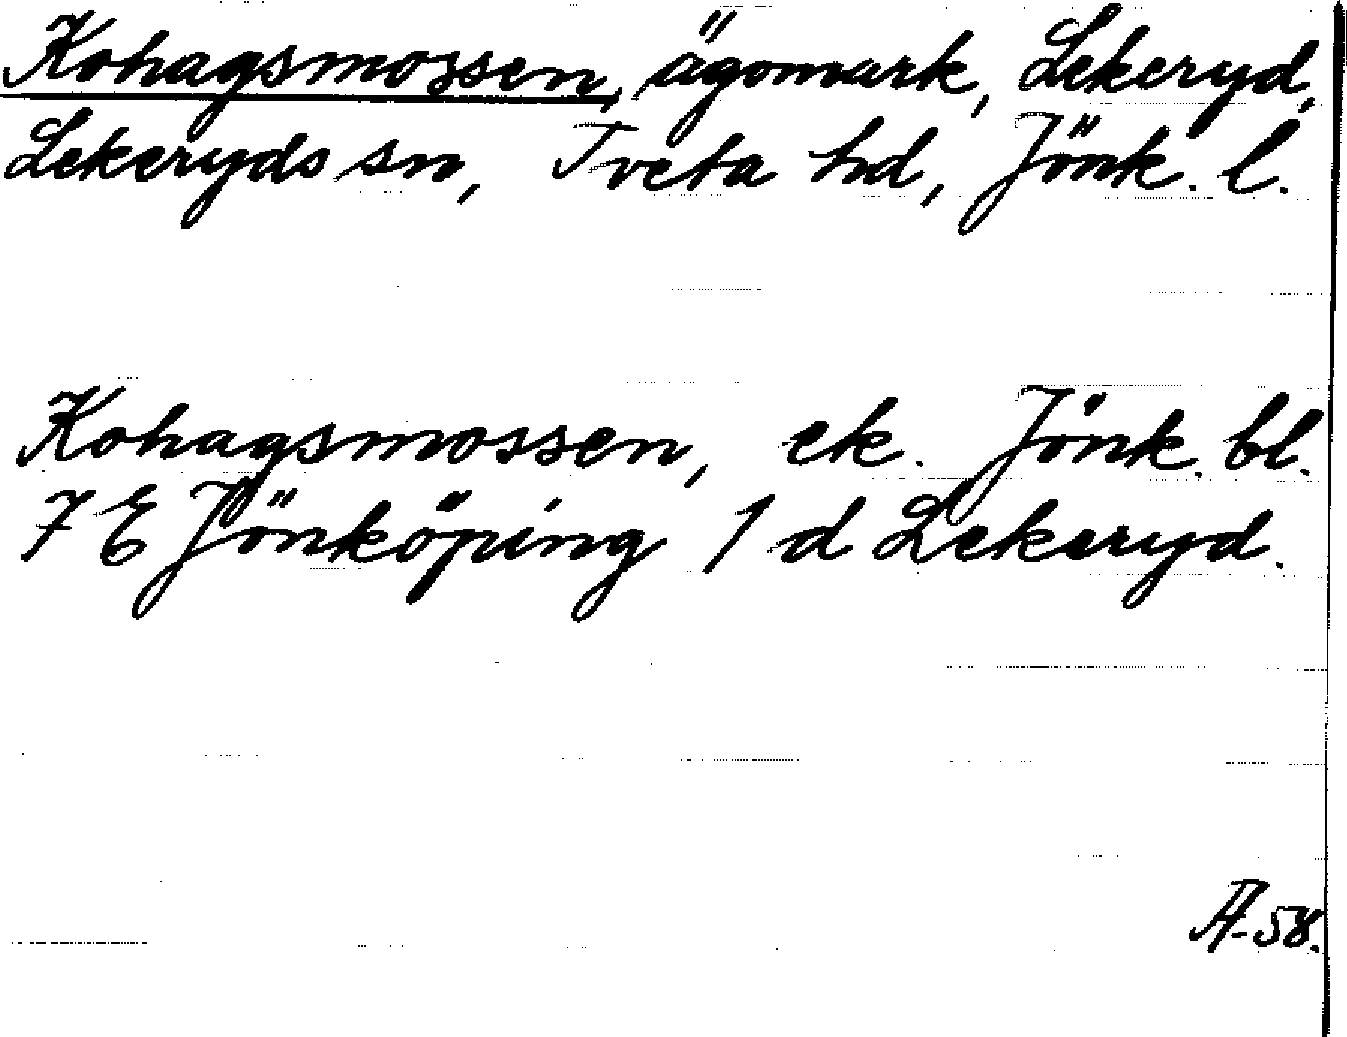 Kohagsmossen, ägomark, Lekeryd,
Lekeryds sn, Tveta hd, Jönk. l.
Kohagsmossen, ek. Jönk. bl.
7 E Jönköping 1 d Lekeryd.
Å-58.